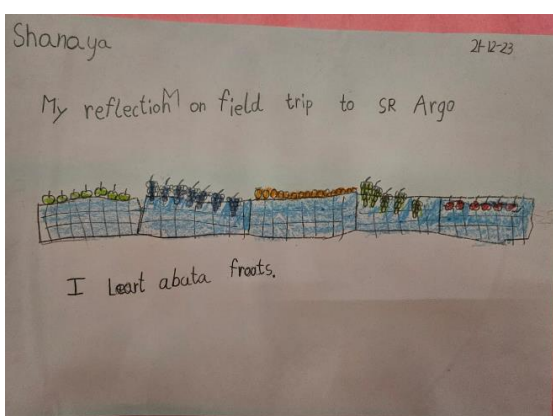 Shanaya
21-12-23
My reflection on field trip to SR Argo
I Leart abata froots.